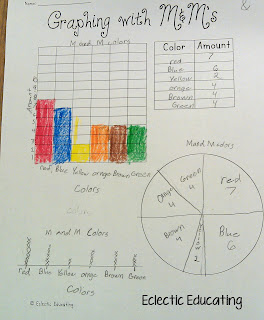 Name:
Graphing with M&M's
M and M colors
Color Amount
red 7
Blue 6
Yellow 2
orange 4
Brown 4
Green 4
Amount
red, Blue Yellow orange Brown Green
Colors
M and M colors
Orange 4
Green 4
red 7
Brown 4
2
Blue 6
M and M Colors
Red Blue Yellow orange Brown Green
Colors
© Eclectic Educating
Eclectic Educating